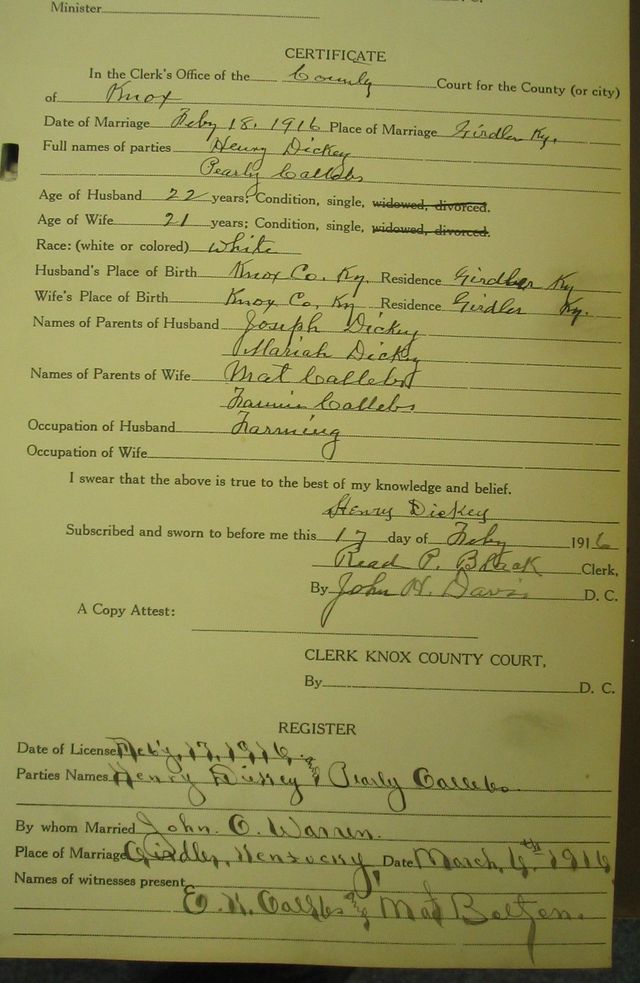 Minister
CERTIFICATE
In the Clerk's Office of the County Court for the County (or city)
of Knox
Date of Marriage Feby 18. 1916 Place of Marriage Girdler Ky.
Full names of parties Henry Dickey
Pearly Callebs
Age of Husband 22 years; Condition, single, widowed, divorced.
Age of Wife 21 years; Condition, single, widowed, divorced.
Race: (white or colored) White
Husband's Place of Birth Knox Co. Ky. Residence Girdler Ky
Wife's Place of Birth Knox Co, Ky Residence Girdler Ky.
Names of Parents of Husband Joseph Dickey
Mariah Dickey
Names of Parents of Wife Mat Callebs
Fannie Callebs
Occupation of Husband Farming
Occupation of Wife
I swear that the above is true to the best of my knowledge and belief.
Henry Dickey
Subscribed and sworn to before me this 17 day of Feby 1916
Read P. Black Clerk,
By John H. Davis D. C.
A Copy Attest:
CLERK KNOX COUNTY COURT,
By D. C.
REGISTER
Date of License Feb'y, 17, 1916,
Parties Names Henry Dickey & Pearly Callebs
By whom Married John. O. Warren.
Place of Marriage Girdler, Kentucky, Date March, 6th 1916
Names of witnesses present
E. H. Callebs & Mat